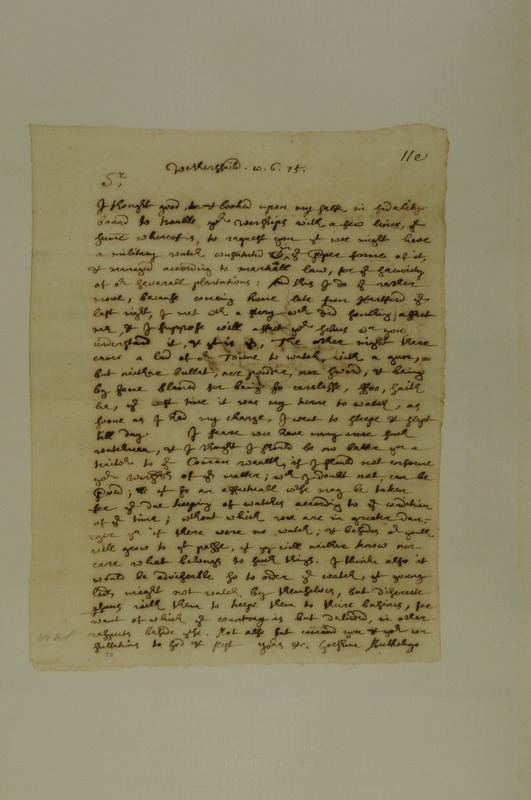 11e
Wethersfeild. 10. 6. 75.
Sr,
I thought good, & looked upon my selfe in fidelity
bound to trouble yor worships with a few lines, ye
sume whereof is, to request you yt wee might have
a military watch constituted in ye forme of it,
& managed according to marshall law, for ye security
of or severall plantations: And this I do ye rather
move, because comeing home late from Hartford ye
last night, I met wth a story wch did something affect
me, & I suppose will affect yor selves wn you
understand it, & it is ys, The other night there
came a lad of or Towne to watch, with a gun,
but neither bullet, nor powder, nor sword; & being
by some blamed for being so carelesse, Soo, saith
he, ye last time it was my turne to watch, as
soone as I had my charge, I went to sleepe & slept
till day. I feare wee have many more such
watchmen, & I thought I should be no better yn a
traitor to ye Comon wealth, if I should not informe
yor worships of ye matter; wch I doubt not, can be
& if so an effectuall may be taken
for ye due keeping of watches according to ye condition
of ye time; without which wee are in greater dan-
ger yn if there were no watch; & besides or youth
will grow to yt passe, yt yy will neither know nor
care what belongs to such things. I thinke also it
would be adviseable so to order ye watch, yt young
lads might not watch by themselves, but discreete
with them to keepe them to theire busines, for
want of which ye country is but deluded, in other
respects beside ys. Not else but comend you & yor con-
sultations to God & rest yours &c. Gershom Bulkeley